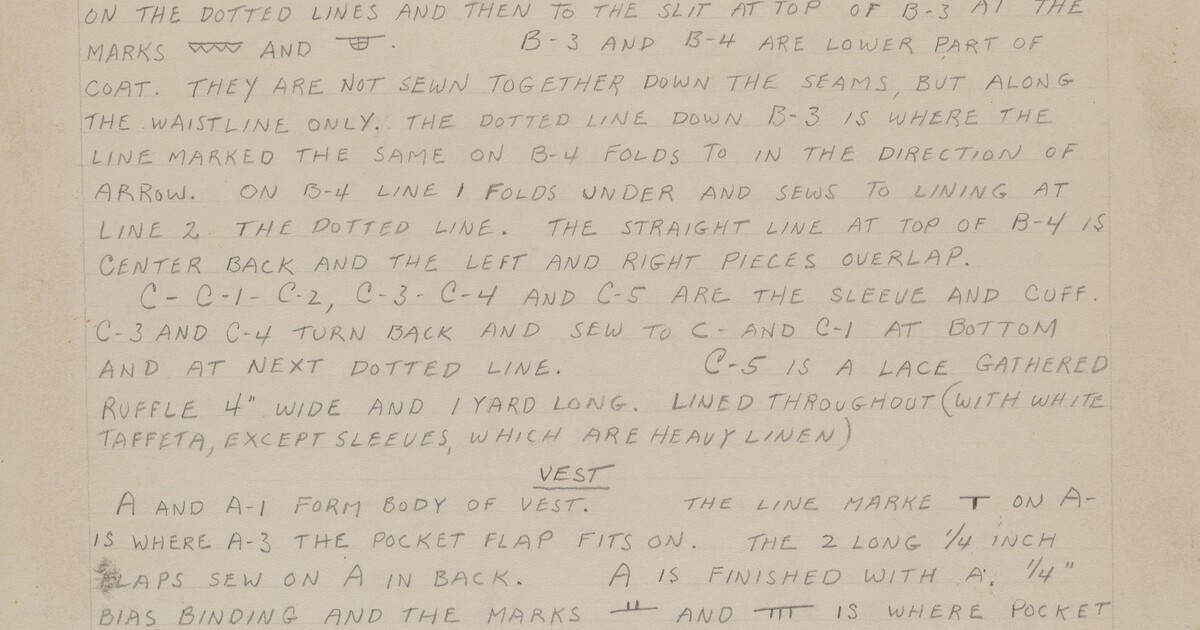 ON THE DOTTED LINES AND THEN TO THE SLIT AT TOP OF B-3 AT THE
MARKS AND . B-3 AND B-4 ARE LOWER PART OF
COAT. THEY ARE NOT SEWN TOGETHER DOWN THE SEAMS, BUT ALONG
THE WAISTLINE ONLY. THE DOTTED LINE DOWN B-3 IS WHERE THE
LINE MARKED THE SAME ON B-4 FOLDS TO IN THE DIRECTION OF
ARROW. ON B-4 LINE 1 FOLDS UNDER AND SEWS TO LINING AT
LINE 2 THE DOTTED LINE. THE STRAIGHT LINE AT TOP OF B-4 IS
CENTER BACK AND THE LEFT AND RIGHT PIECES OVERLAP.
C- C-1- C-2, C-3- C-4 AND C-5 ARE THE SLEEVE AND CUFF.
C-3 AND C-4 TURN BACK AND SEW TO C- AND C-1 AT BOTTOM
AND AT NEXT DOTTED LINE. C-5 IS A LACE GATHERED
RUFFLE 4" WIDE AND 1 YARD LONG. LINED THROUGHOUT (WITH WHITE
TAFFETA, EXCEPT SLEEVES, WHICH ARE HEAVY LINEN)
VEST
A AND A-1 FORM BODY OF VEST. THE LINE MARKE T ON A-
IS WHERE A-3 THE POCKET FLAP FITS ON. THE 2 LONG 1/4 INCH
FLAPS SEW ON A IN BACK. A IS FINISHED WITH A. 1/4"
BIAS BINDING AND THE MARKS AND IS WHERE POCKET